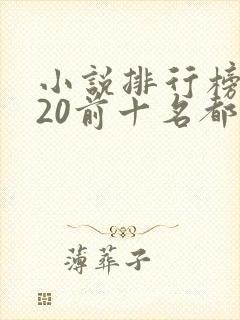 小說排行榜
20前十名都
薄葬子